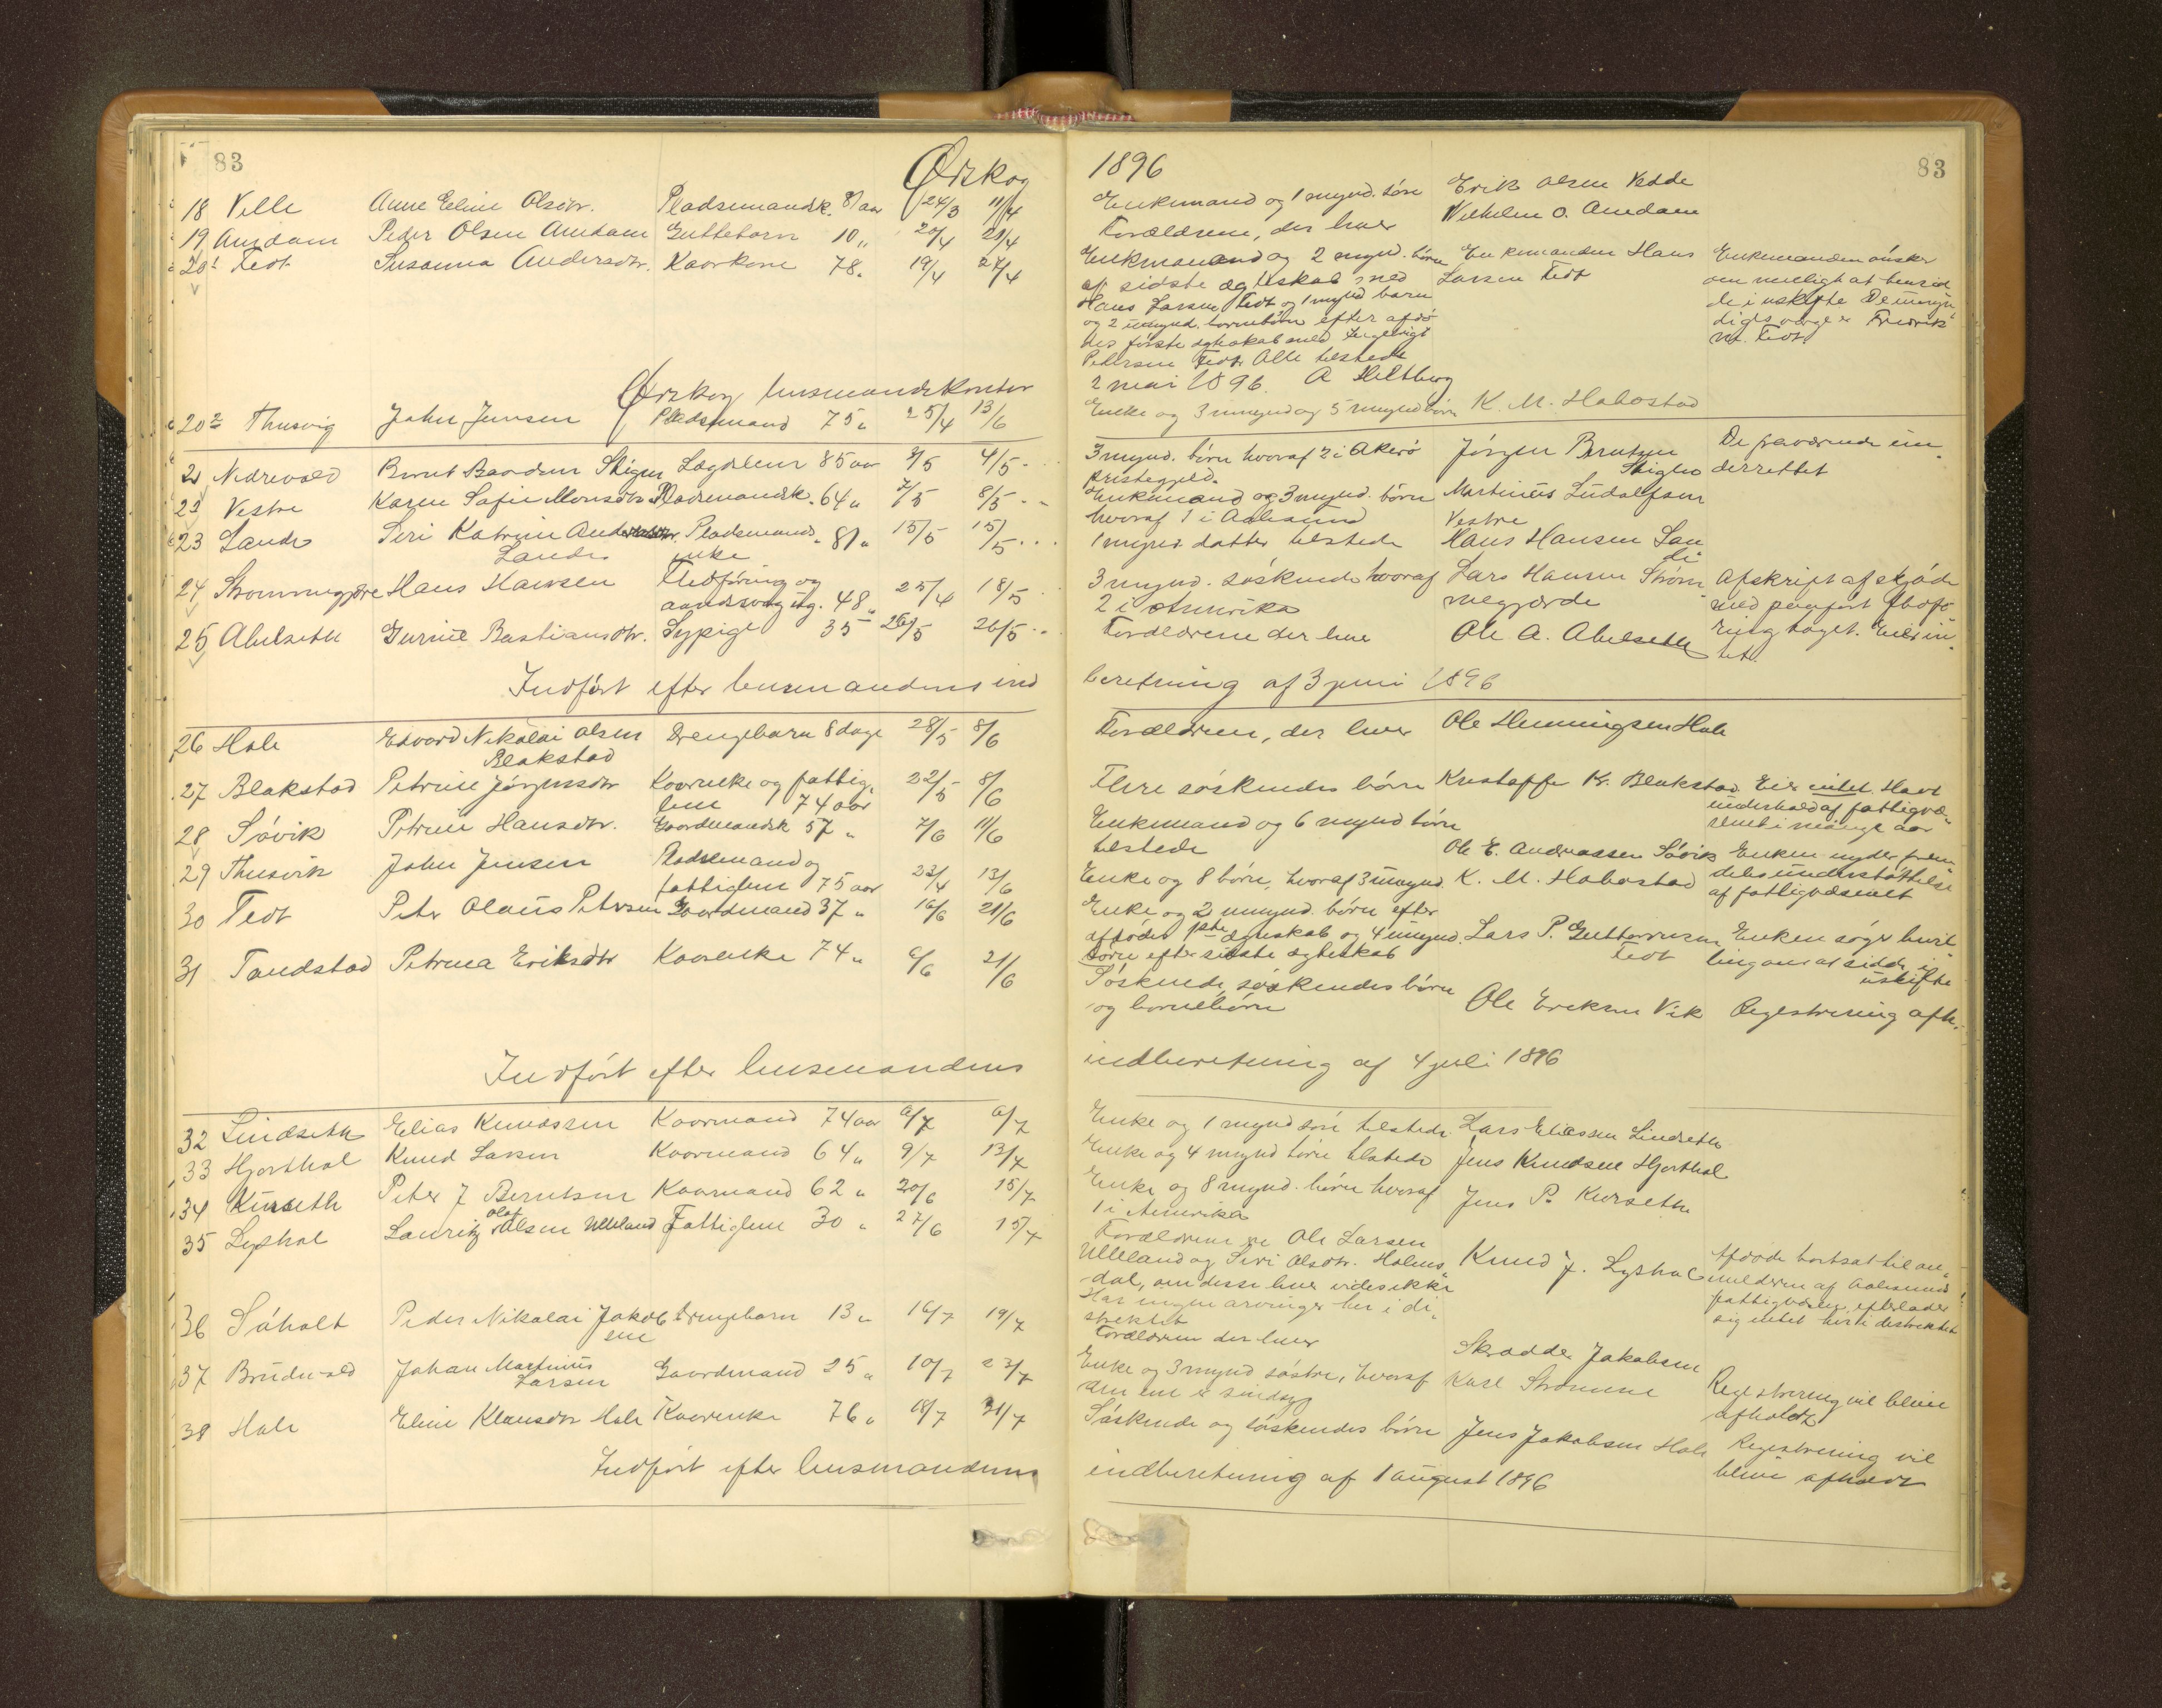 83
Ørskog
18 Velle Anne Eline Olsdtr. Pladsemandsk. 81 aar 24/3 11/4
19 Amdam Peder Olsen Amdam Guttebarn 10 " 20/4 21/4
20¹ Tedt Susanna Andersdtr. Kaarkone 78 " 19/4 27/4
Ørskog lensmandskontor
20² Thusvig John Jensen Pladsemand 75 " 25/4 13/6
21 Nedrevold Bernt Baardsen Stigen Lægdslem 85 aar 2/5 4/5
22 Vestre Karen Sofie Monsdtr Pladsemandsk. 64 " 7/5 8/5
23 Lande Siri Katrine Andersdtr. Pladsemands 81 " 15/5 15/5
Lande enke
24 Strømmegjære Hans Hansen Fledføring og 25/4 18/5
aandssvag ug. 48 "
25 Abelseth Gurine Bastiansdtr. Sypige 35 26/5 26/5
Indført efter lensmandens ind
26 Hole Edvard Nikolai Olsen Drengebarn 8 dage 28/5 8/6
Blakstad
27 Blakstad Petrine Jørgensdtr Kaarenke og fattig- 22/5 8/6
lem 74 aar
28 Søvik Petrine Hansdtr. Gaardmandsk 57 " 7/6 11/6
29 Thusvik John Jensen Pladsemand og 23/4 13/6
fattiglem 75 aar
30 Tedt Peter Olaus Petersen Gaardmand 37 " 16/6 21/6
31 Tandstad Petrina Eriksdtr Kaarenke 74 " 6/6 21/6
Indført efter lensmandens
32 Lindseth Elias Knudssen Kaarmand 74 aar 6/7 6/7
33 Hjorthol Knud Larsen Kaarmand 64 " 9/7 13/7
34 Kurseth Peter J Berntsen Kaarmand 62 " 20/6 15/7
35 Lyshol Lauritz Olaf Olsen Ulleland Fattiglem 30 " 27/6 15/7
36 Søholt Peder Nikolai Jakob Drengebarn 13 " 16/7 19/7
sen
37 Brudevold Johan Martinus Gaardmand 25 " 10/7 23/7
Larsen
38 Hole Eline Klausdtr Hole Kaarenke 76 " 18/7 31/7
Indført efter lensmandens
1896
83
Enkemand og 1 mynd. søn Erik Olsen Vedde
Forældrene, der lever Vilhelm O. Amdam
Enkemand og 2 mynd. børn Enkemanden Hans Enkemanden ønsker
af sidste ægteskab med Larsen Tedt om muligt at hensid-
Hans Larsen Tedt og 1 mynd barn de i uskifte De umyn-
og 2 umynd. barnebørn efter afdø- diges værge er Fredrik
des første ægteskab med Ingebrigt M. Tedt
Petersen Tedt. Alle tilstede
2 mai 1896. A Heltberg
Enke og 3 umynd og 5 mynd børn K. M. Habostad
3 mynd. børn hvoraf 2 i Akerø Jørgen Berntsen De fraværende un-
prestegjeld. Stigen derrettet
Enkemand og 3 mynd. børn Martinus Ludolfsen
hvoraf 1 i Aalesund Vestre
1 mynd. datter tilstede Hans Hansen Lan
de
3 mynd. søskende hvoraf Lars Hansen Strøm- Afskrift af skjøde
2 i Amerika megjærde med paaført fledfø-
Forældrene der lever Ole A. Abelseth ring taget. Eier in-
tet.
beretning af 3 juni 1896
Forældrene, der lever Ole Henningsen Hole
Flere søskendes børn Kristoffer K. Blakstad Eier intet. Havt
underhold af fattigvæ-
senet i mange aar
Enkemand og 6 mynd børn
tilstede Ole E. Andreassen Søvik Enken nyder frem-
Enke og 8 børn, hvoraf 3 umynd. K. M. Habostad deles understøttelse
af fattigvæsenet
Enke og 2 umynd. børn efter
afdødes 1ste ægteskab og 4 umynd. Lars P. Guttormsen Enken søger bevil-
børn efter sidste ægteskab Tedt ling om at sidde i
uskifte
Søskende, søskendes børn
og børnebørn Ole Eriksen Vik Registrering afh.
indberetning af 4 juli 1896
Enke og 1 mynd søn tilstede Lars Eliassen Lindseth
Enke og 4 mynd børn tilstede Jens Knudsen Hjorthol
Enke og 8 mynd. børn hvoraf Jens P. Kurseth
1 i Amerika
Forældrene er Ole Larsen
Ulleland og Siri Olsdtr. Holens- Knud J. Lyshol Afdøde bortsat til an-
dal, om disse lever vides ikke meldren af Aalesunds
Har ingen arvinger her i di- fattigvæsen, efterlader
striktet sig intet her i destriktet
Forældrene der lever Skrædder Jakobsen
Enke og 3 mynd søstre, hvoraf Karl Strømme Registrering vil blive
den ene er sindsyg afholdt
Søskende og søskendes børn Jens Jakobsen Hole Registrering vil
blive afholdt
indberetning af 1 august 1896